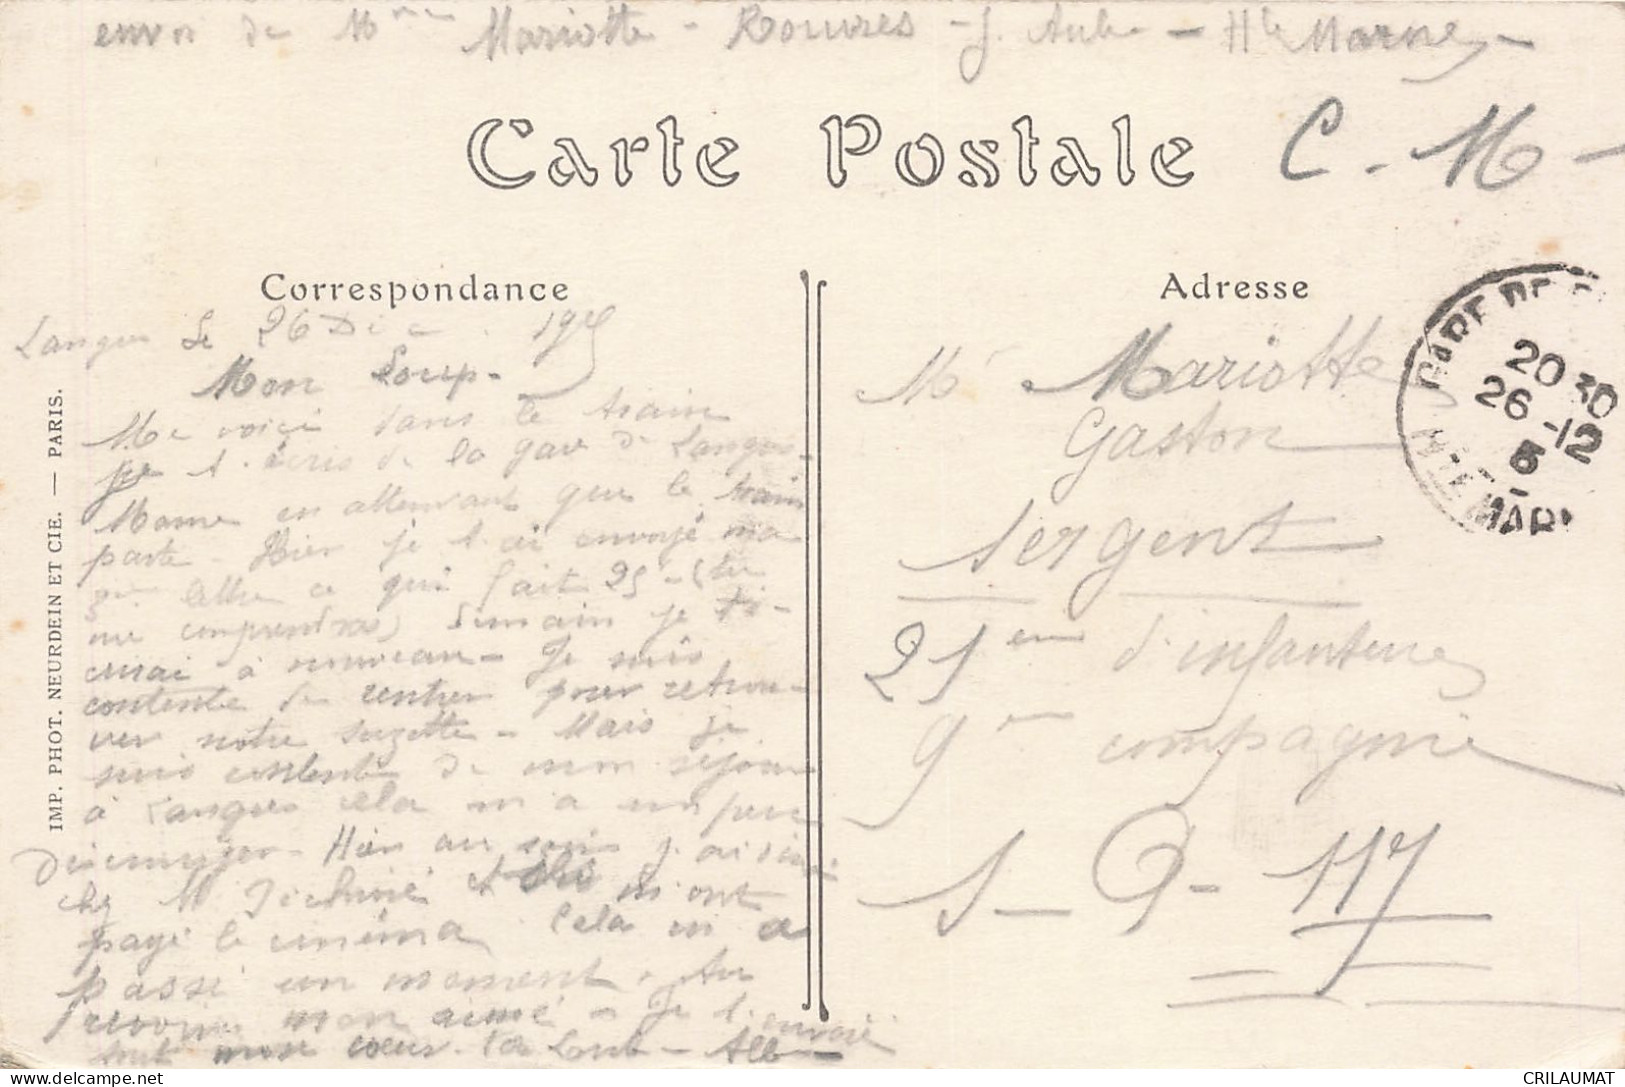 envoi de Mme Mariotte - Rouvres - s. Aube - Hte Marne -
Carte Postale
C. M -
Correspondance
Adresse
Langres le 26 Déc. 1915
Mon Loup -
Me voici dans le train
je t'écris de la gare de Langres-
Marne en attendant que le train
parte - Hier je t'ai envoyé ma
lettre ce qui fait 25 - (tu
me comprendras) Demain je t'é-
crirai à nouveau - Je suis
contente de rentrer pour retrou-
ver notre Suzette - Mais je
suis contente de mon séjour
à Langres cela m'a un peu
Désennuyer - Hier au soir j'ai diné
chez M et m'ont
payé le cinéma Cela m'a
passé un moment. Au
revoir mon aimé - Je t'envoie
tout mon coeur. Ta Loute -
Mr Mariotte
Gaston
Sergent
21ème d'infanterie
9me compagnie
S - P - 117
GARE DE
20 30
26 -12
5
HTE MARNE
IMP. PHOT. NEURDEIN ET CIE. — PARIS.
CRILAUMAT